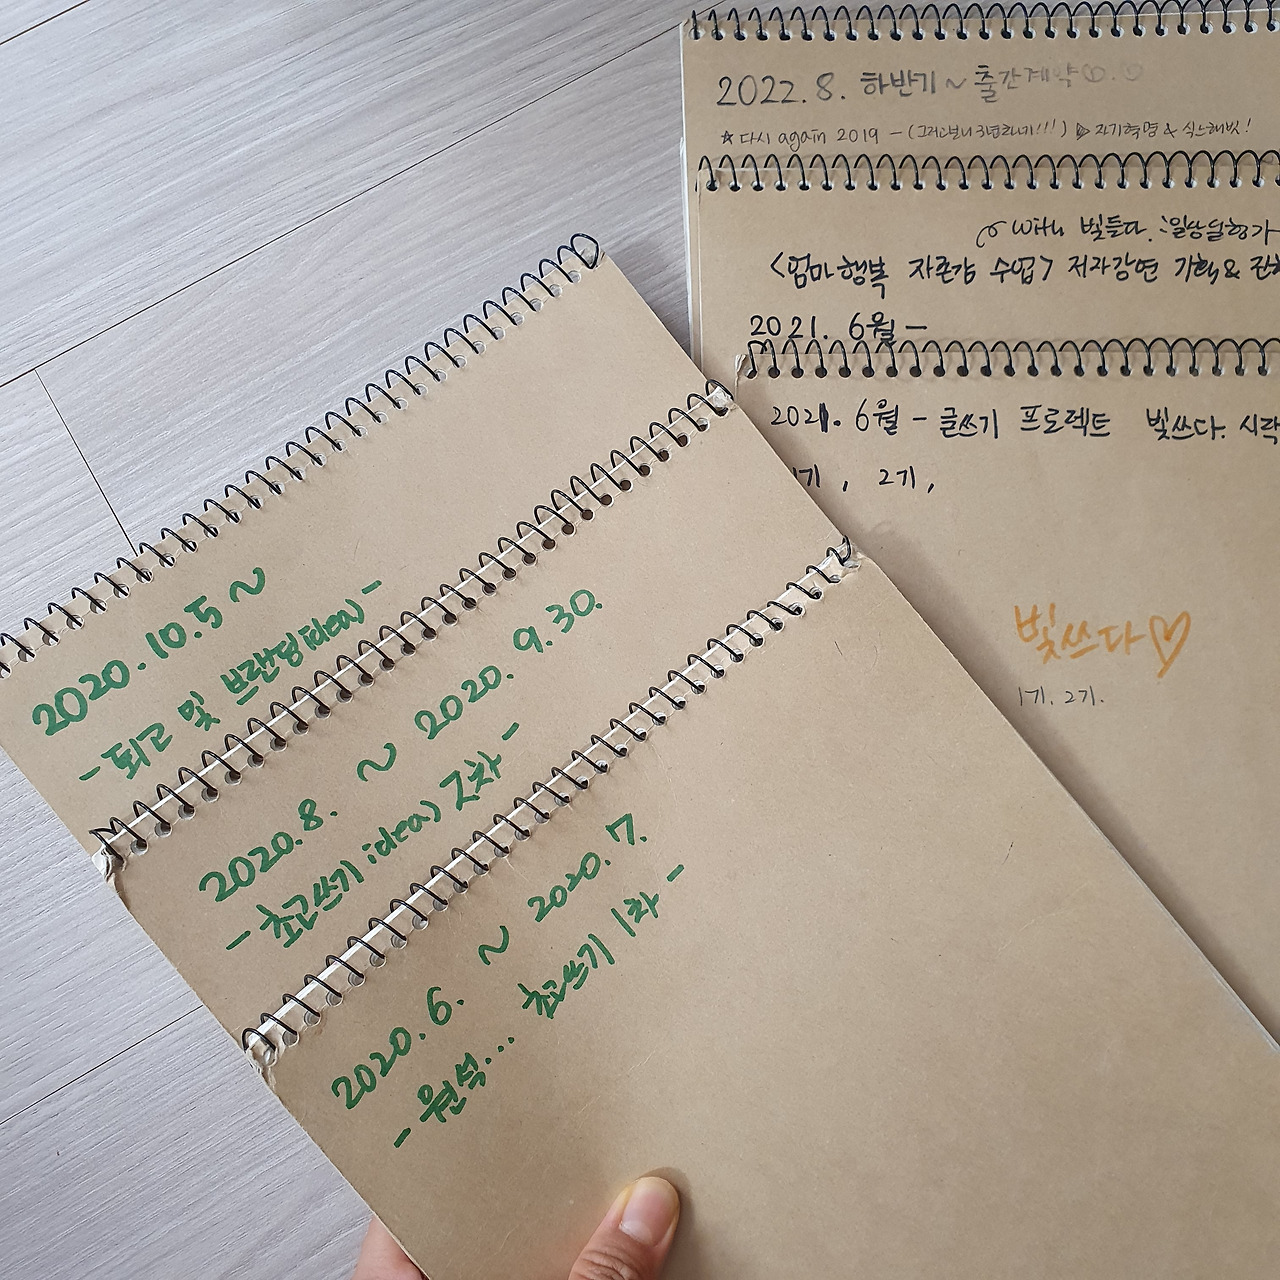 2020.10.5 ~
- 퇴고 및 브랜딩 idea) -
2020.8. ~ 2020.9.30.
- 초고쓰기 idea) 2차 -
2020.6. ~ 2020.7.
- 원석... 초고쓰기 1차 -
2022.8. 하반기 ~ 출간계약♡.♡
☆ 다시 again 2019 - (그러고보니 3년화내기!!!) ▷ 자기혁명 & 식스해빗!
with 빛들다. :일상실행가
<엄마행복 자존감 수업> 저자강연 기획 &
2021. 6월 -
2021. 6월 - 글쓰기 프로젝트 빛쓰다. 시작
1기, 2기,
빛쓰다♡
1기. 2기.